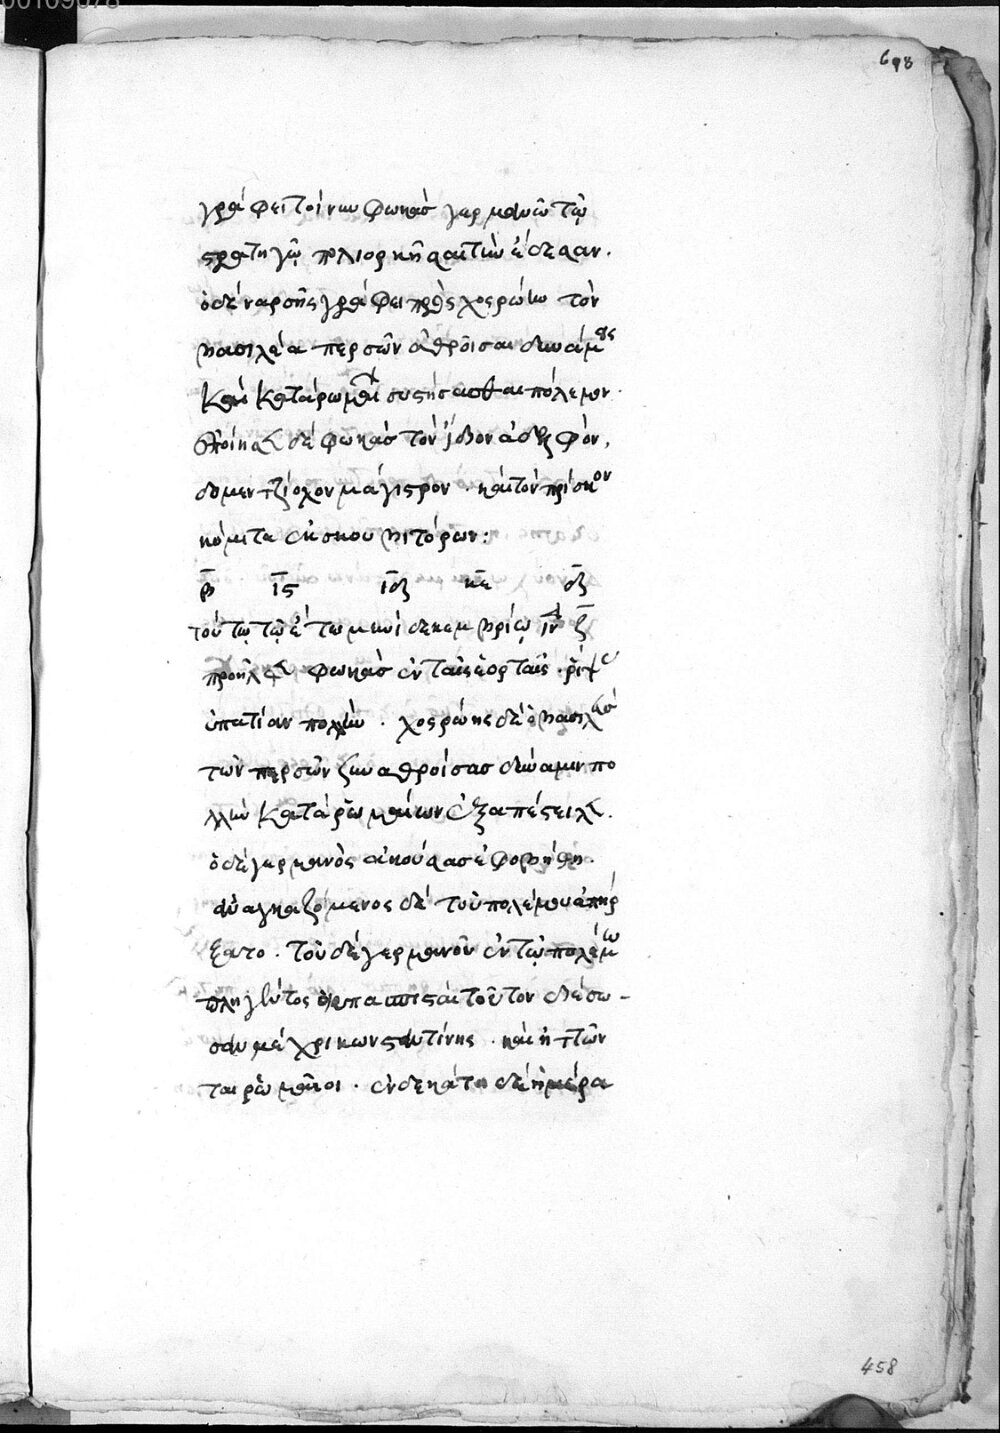 00109078
698
γράφει τοίνυν φωκὰσ γερμανῶ τῷ
στρατηγῷ πολιορκῆσαι τὴν ἔδεσαν.
ὁ δὲ ναρσῆς γράφει πρὸς χοσρόην τὸν
βασιλέα περσῶν ἀθροῖσαι δυνάμεις
καὶ κατὰ ρωμαί συστήσασθαι πόλεμον.
ἐποίησε δὲ φωκὰσ τὸν ἴδιον ἀδελφὸν,
δομεντζίολον μάγιστρον. καὶ τὸν πρίσκον
κόμιτα ἐκσκουβιτόρων:
ῑς ιδ κε
τούτῳ τῷ ἔτει μηνὶ δεκεμβρίῳ ἰν ζ
προῆλθε φωκὰσ ἐν ταῖς ἑορταῖς. ρίψε
ὑπατίαν πολλὴν. χοσρόης δὲ ὁ βασιλεὺσ
τῶν περσῶν συναθροίσασ δύναμιν πο
λλὴν κατὰ ρωμαίων ἐξαπέστειλε.
ὁ δὲ γερμανὸς ἀκούσασ ἐφοβήθη.
ἀναγκαζόμενος δὲ τοῦ πολέμου ἀπήρ
ξατο. τοῦ δὲ γερμανοῦ ἐν τῷ πολέμω
πληγέντος ὑπασπισταὶ τοῦτον διέσω-
σαν μέχρι κωνσταντίνης. καὶ ἡττῶν
ται ρωμαῖοι. ἐνδεκάτη δὲ ἡμέρα
458